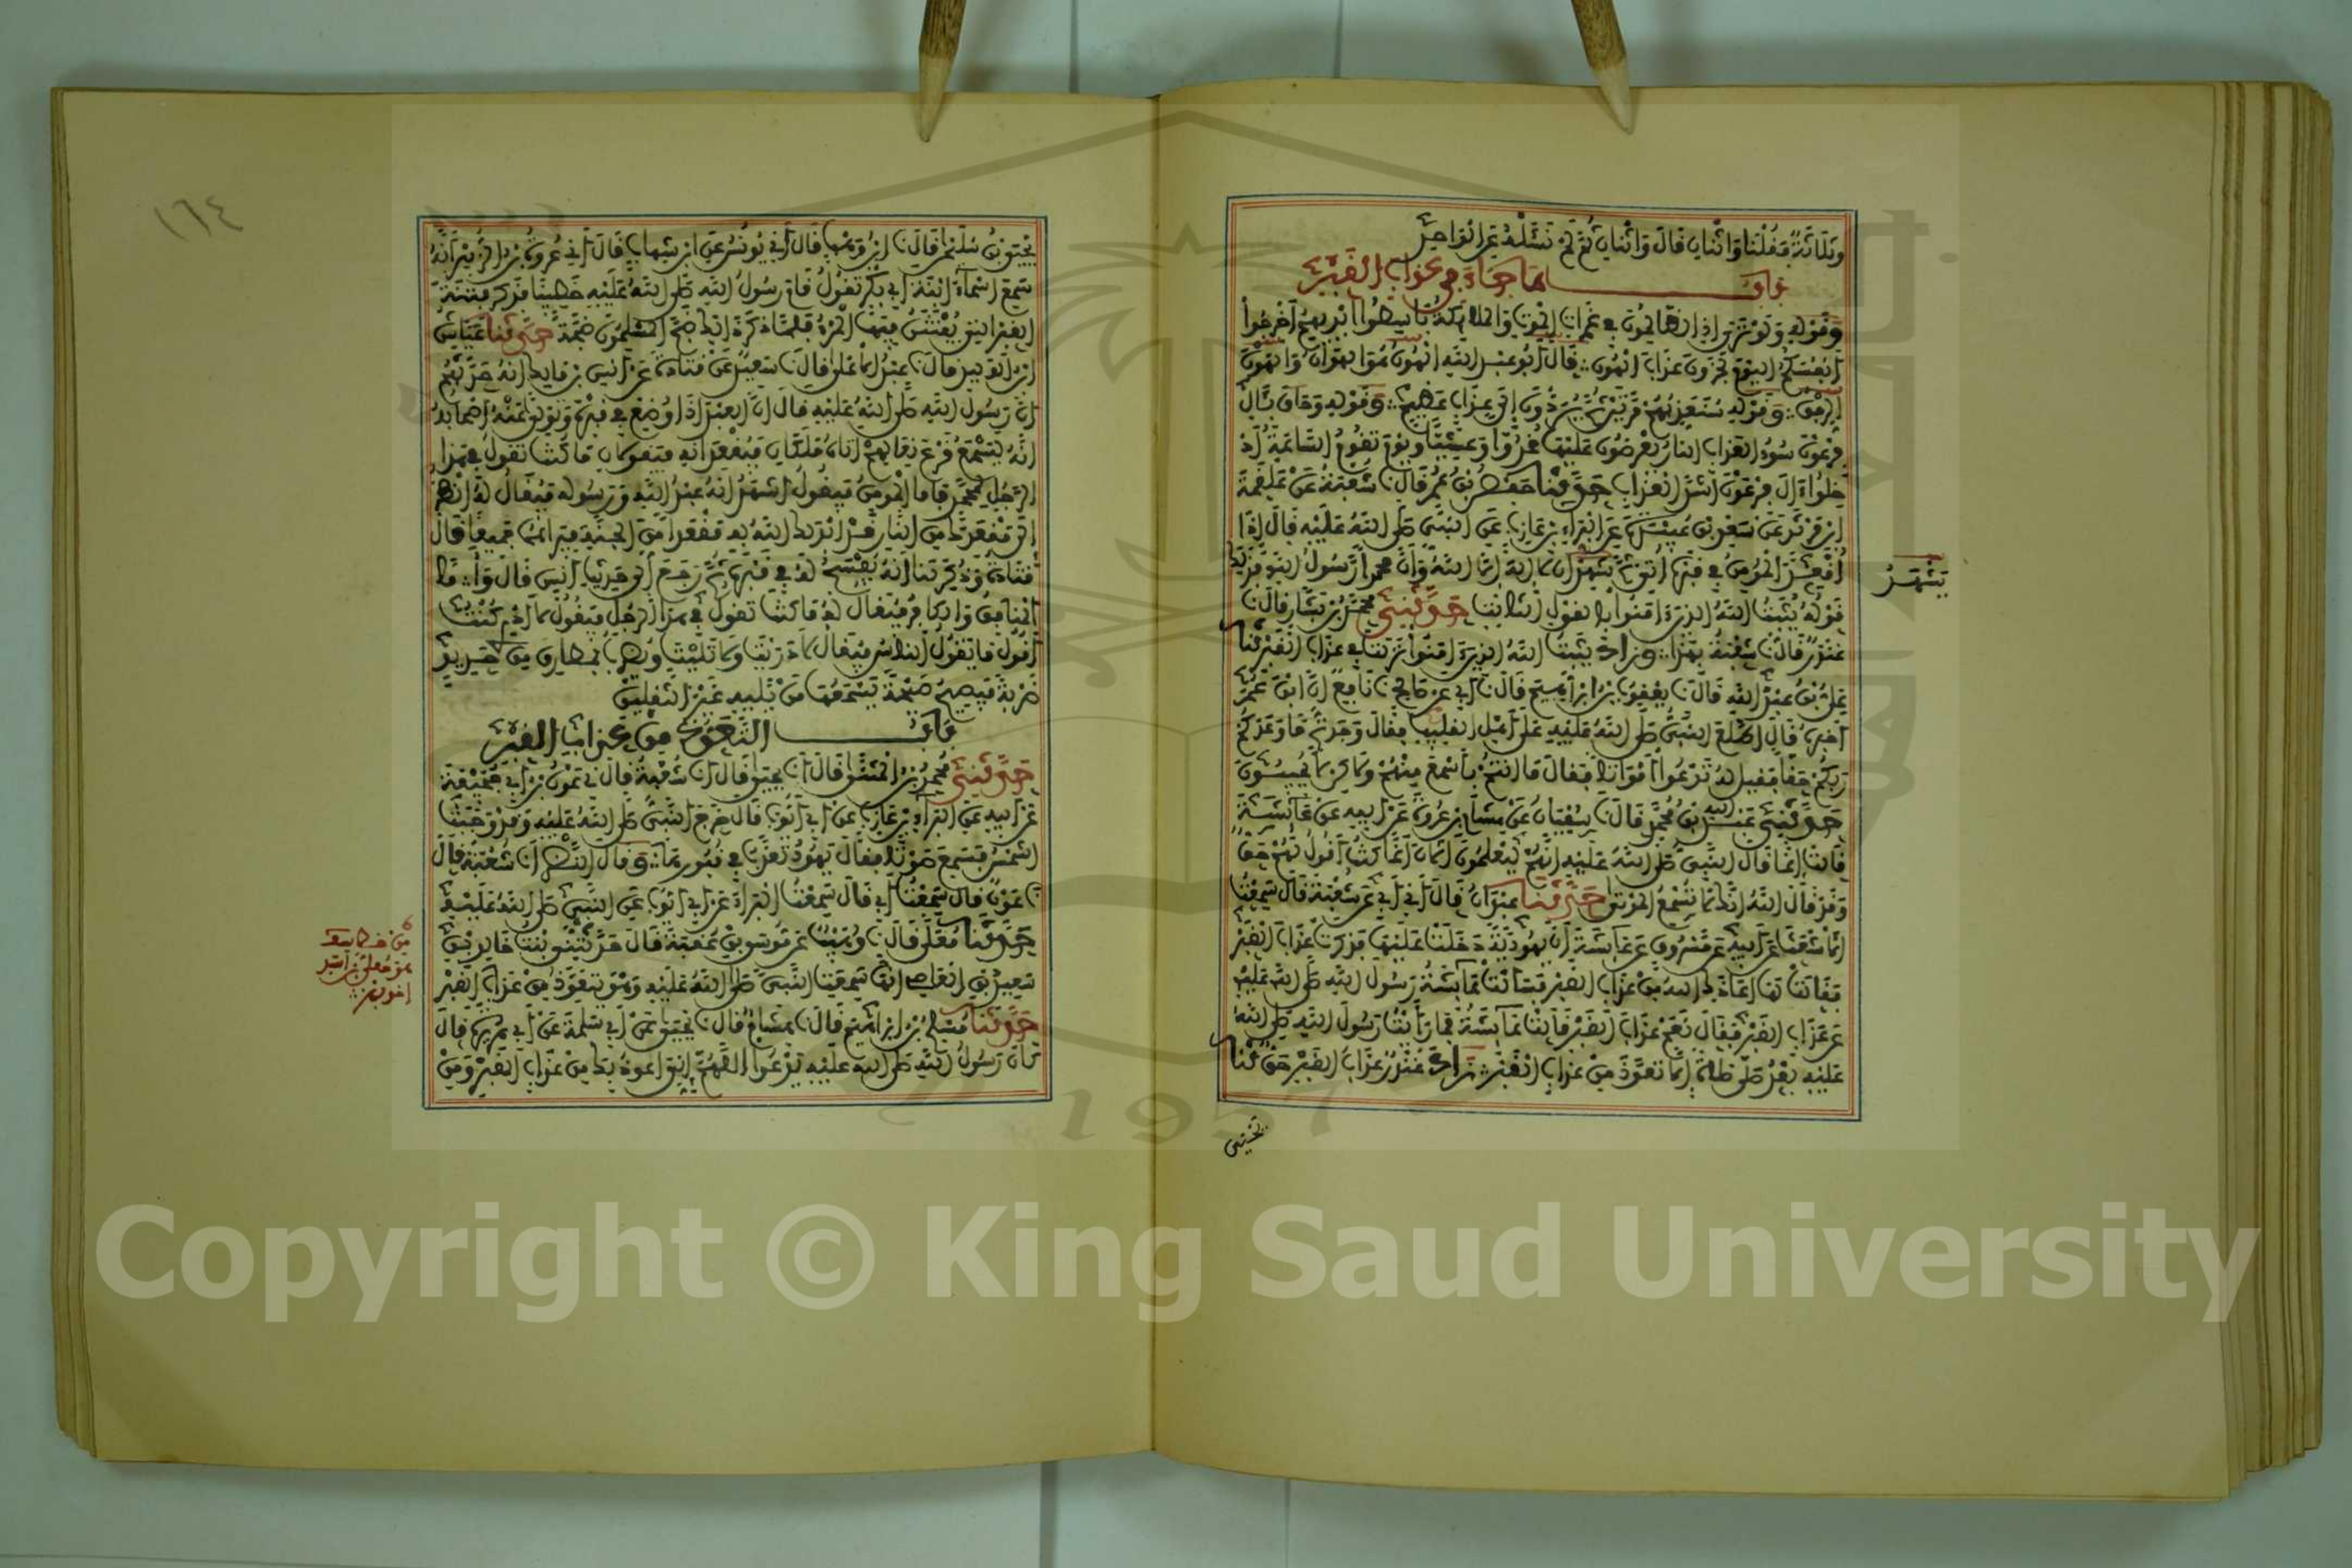 وثلاثة فقلنا واثنان قال واثنان ثم لم نسئله عن الواحد
باب ما جاء في عذاب القبر
وقوله ولو ترى إذ الظالمون في غمرات الموت والملائكة باسطوا أيديهم أخرجوا
أنفسكم اليوم تجزون عذاب الهون قال أبو عبد الله الهون هو الهوان والهون
الرفق وقوله سنعذبهم مرتين ثم يردون إلى عذاب عظيم وقوله وحاق بئال
فرعون سوء العذاب النار يعرضون عليها غدوا وعشيا ويوم تقوم الساعة اد
خلوا ءال فرعون أشد العذاب حدثنا حفص بن عمر قال نا شعبة عن علقمة
ابن مرثد عن سعد بن عبيدة عن البراء بن عازب عن النبي صلى الله عليه قال إذا
أقعد المؤمن في قبره أتي ثم يشهد أن لا إله إلا الله وأن محمدا رسول الله فذلك
قوله يثبت الله الذين ءامنوا بالقول الثابت حدثني محمد بن بشار قال نا
غندر قال نا شعبة بهذا وزاد يثبت الله الذين ءامنوا نزلت في عذاب القبر نا
علي بن عبد الله قال نا يعقوب بن إبراهيم قال نا أبي عن صالح نا نافع أن ابن عمر
أخبره قال اطلع النبي صلى الله عليه على أهل القليب فقال وجدتم ما وعدكم
ربكم حقا فقيل له تدعوا أمواتا فقال ما أنتم بأسمع منهم ولكن لا يجيبون
حدثني عبد الله بن محمد قال نا سفيان عن هشام بن عروة عن أبيه عن عائشة
قالت إنما قال النبي صلى الله عليه إنهم ليعلمون الآن أنما كنت أقول لهم حق
وقد قال الله إنك لا تسمع الموتى حدثنا عبدان قال أني أبي عن شعبة قال سمعت
الأشعث عن أبيه عن مسروق عن عائشة أن يهودية دخلت عليها فذكرت عذاب القبر
فقالت لها أعاذك الله من عذاب القبر فسألت عائشة رسول الله صلى الله عليه
عن عذاب القبر فقال نعم عذاب القبر قالت عائشة فما رأيت رسول الله صلى الله
عليه بعد صلى صلاة إلا تعوذ من عذاب القبر زاد غندر عذاب القبر حق نا
يشهد
يحيى
١٦٤
يحيى بن سليمان قال نا ابن وهب قال أني يونس عن ابن شهاب قال أني عروة بن الزبير أنه
سمع أسماء ابنة أبي بكر تقول قام رسول الله صلى الله عليه خطيبا فذكر فتنة
القبر التي يفتتن فيها المرء فلما ذكر ذلك ضج المسلمون ضجة حدثنا عياش
ابن الوليد قال نا عبد الأعلى قال نا سعيد عن قتادة عن أنس بن مالك أنه حدثهم
أن رسول الله صلى الله عليه قال إن العبد إذا وضع في قبره وتولى عنه أصحابه
إنه ليسمع قرع نعالهم أتاه ملكان فيقعدانه فيقولان ما كنت تقول في هذا
الرجل لمحمد فأما المؤمن فيقول أشهد أنه عبد الله ورسوله فيقال له انظر
إلى مقعدك من النار قد أبدلك الله به مقعدا من الجنة فيراهما جميعا قال
قتادة وذكر لنا أنه يفسح له في قبره ثم رجع إلى حديث أنس قال وأما
المنافق والكافر فيقال له ما كنت تقول في هذا الرجل فيقول لا أدري كنت
أقول ما يقول الناس فيقال لا دريت ولا تليت ويضرب بمطارق من حديد
ضربة فيصيح صيحة يسمعها من يليه غير الثقلين
باب التعوذ من عذاب القبر
حدثني محمد بن المثنى قال نا يحيى قال نا شعبة قال ني عون بن أبي جحيفة
عن أبيه عن البراء بن عازب عن أبي أيوب قال خرج النبي صلى الله عليه وقد وجبت
الشمس فسمع صوتا فقال يهود تعذب في قبورها وقال النضر أنا شعبة قال
نا عون قال سمعت أبي قال سمعت البراء عن أبي أيوب عن النبي صلى الله عليه
حدثنا معلى قال نا وهيب عن موسى بن عقبة قال حدثتني بنت خالد بن
سعيد بن العاصي أنها سمعت النبي صلى الله عليه وهو يتعوذ من عذاب القبر
حدثنا مسلم بن إبراهيم قال نا هشام قال نا يحيى عن أبي سلمة عن أبي هريرة قال
كان رسول الله صلى الله عليه يدعوا اللهم إني أعوذ بك من عذاب القبر ومن